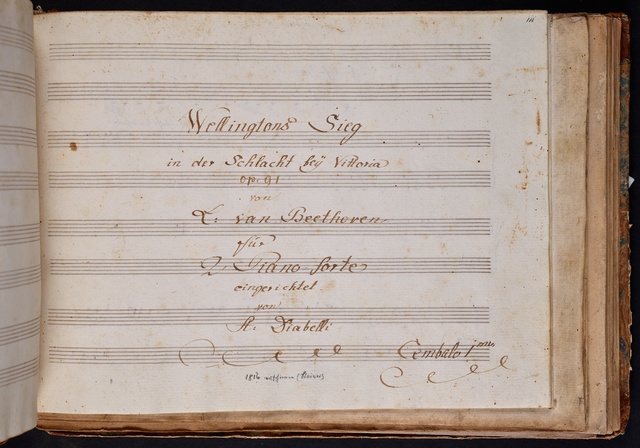 Wellingtons Sieg
in der Schlacht beÿ Vittoria
op. 91
von
L: van Beethoven
für
2 Piano forte
eingerichtet
von
A: Diabelli
Cembalo 1mo
1816